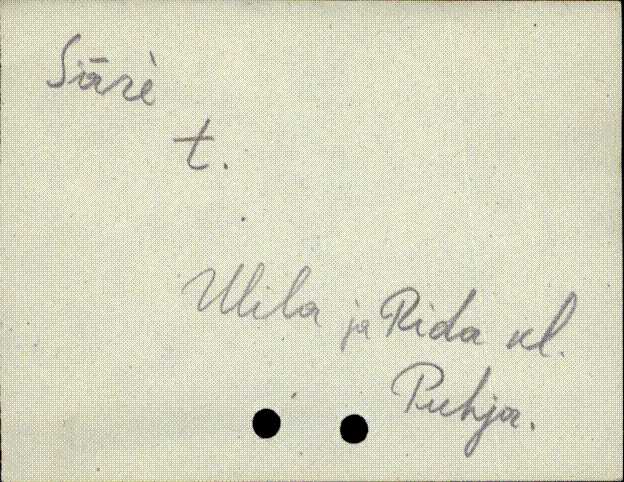 Sārè
t.
Ulila ja Rida kl.
Puhja.